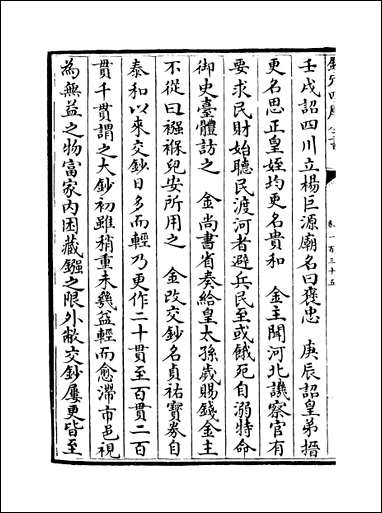 欽定四庫全書
卷一百三十五
壬戌詔四川立楊巨源廟名曰襃忠　庚辰詔皇弟搢
更名思正皇姪均更名貴和　金主聞河北譏察官有
要求民財始聽民渡河者避兵民至或餓死自溺特命
御史臺體訪之　金尚書省奏給皇太孫歲賜錢金主
不從曰襁褓兒安所用之　金改交鈔名貞祐寶券自
泰和以來交鈔日多而輕乃更作二十貫至百貫二百
貫千貫謂之大鈔初雖稍重未幾益輕而愈滯市邑視
為無益之物富家內困藏鏹之限外敝交鈔屢更皆至